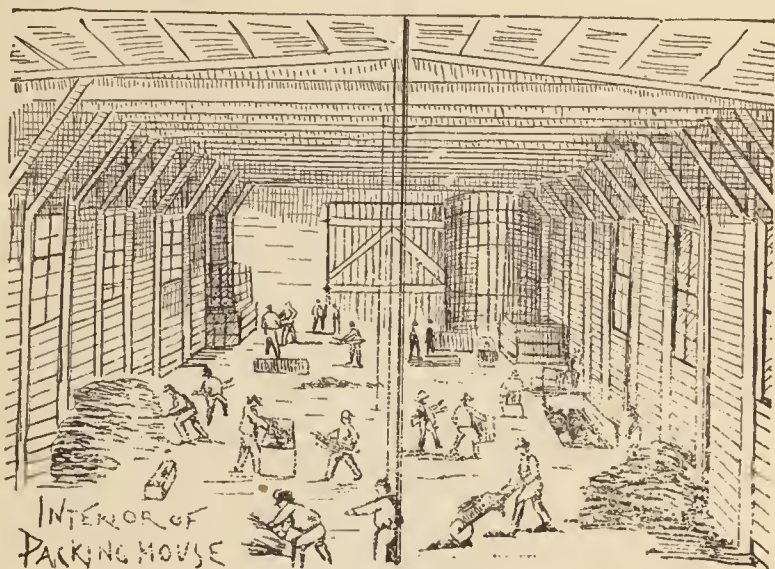 INTERIOR OF
PACKING HOUSE